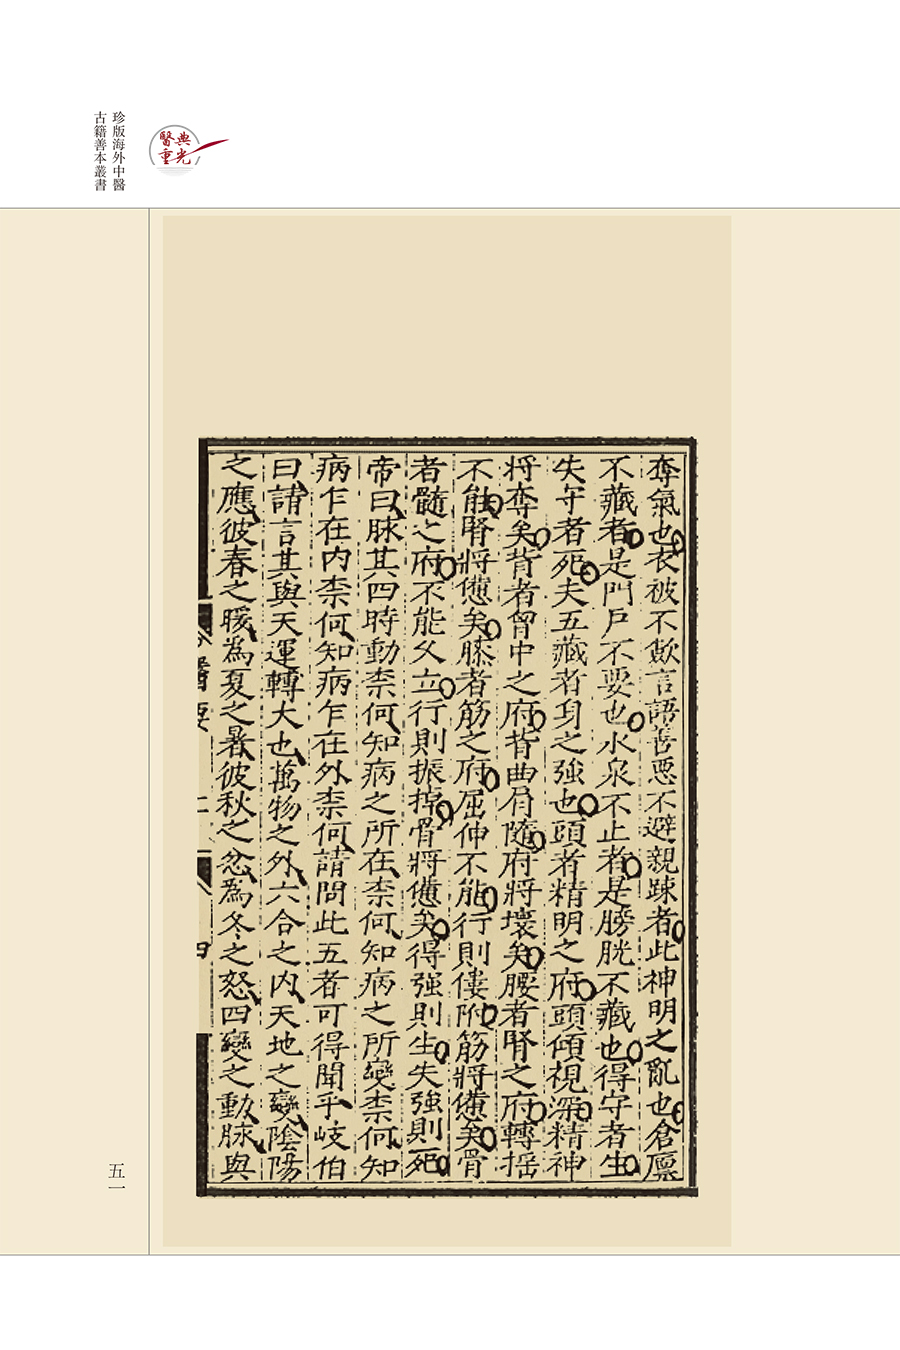 珍版海外中醫
古籍善本叢書
醫典
重光
奪氣也衣被不歛言語善惡不避親踈者此神明之亂也倉廩
不藏者是門戶不要也水泉不止者是膀胱不藏也得守者生
失守者死夫五藏者身之強也頭者精明之府頭傾視深精神
將奪矣背者胷中之府背曲肩隨府將壞矣腰者腎之府轉揺
不能腎將憊矣膝者筋之府屈伸不能行則僂附筋將憊矣骨
者髓之府不能久立行則振掉骨將憊矣得強則生失強則死
帝曰脉其四時動柰何知病之所在柰何知病之所變柰何知
病乍在内柰何知病乍在外柰何請問此五者可得聞乎岐伯
曰請言其與天運轉大也萬物之外六合之内天地之變陰陽
之應彼春之暖為夏之暑彼秋之忿為冬之怒四變之動脉與
五一